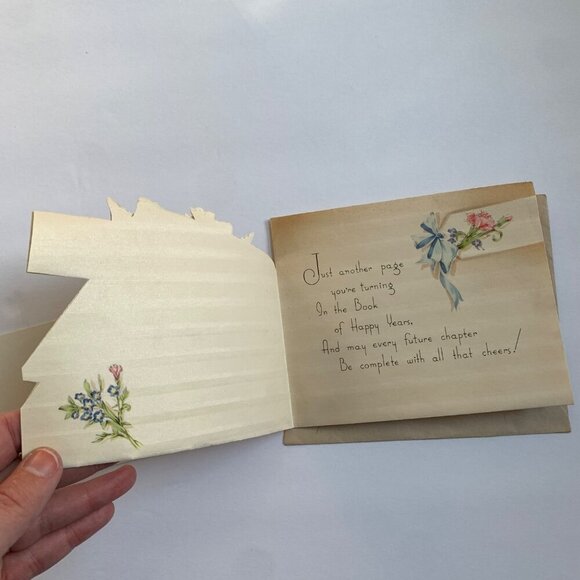 Just another page
you're turning
In the Book
of Happy Years,
And may every future chapter
Be complete with all that cheers!